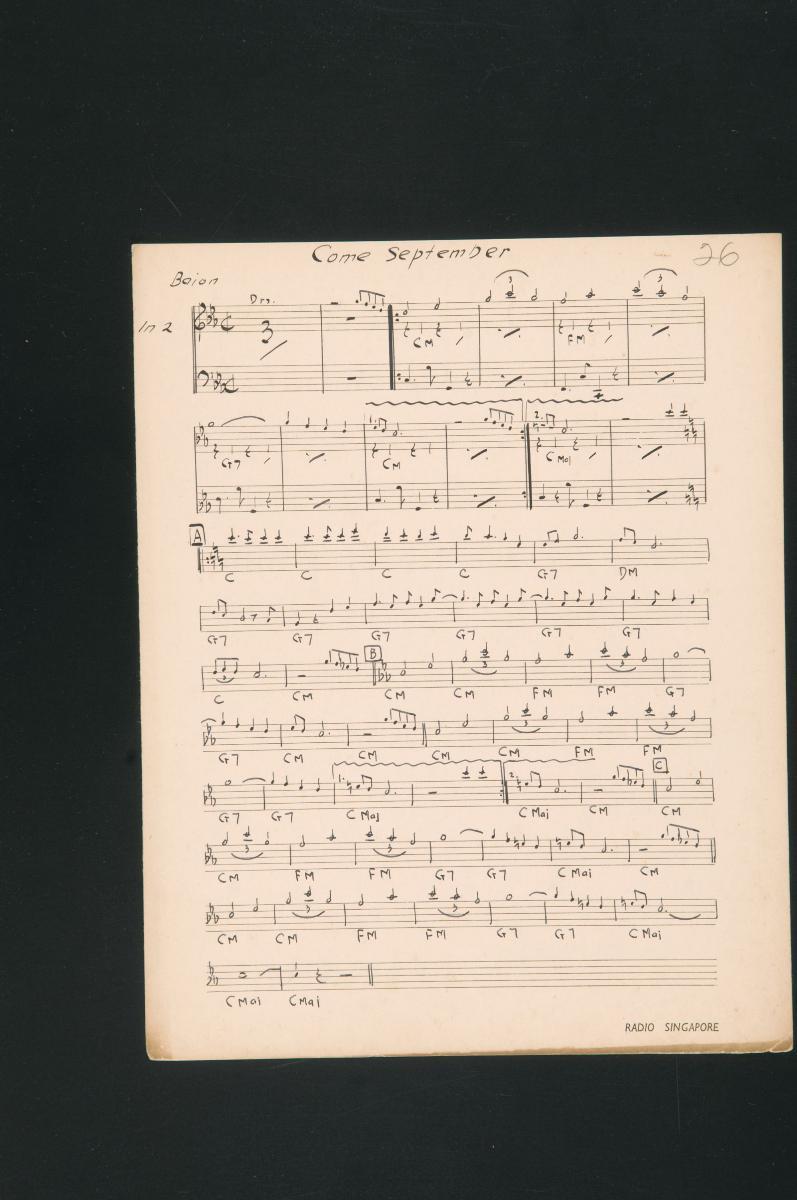 Come September 26
Baion
Drs.
In 2 3 3 3
CM FM
1. 2.
G7 CM CMaj
A
C C C C G7 DM
G7 G7 G7 G7 G7 G7
B
3 3 3
C CM CM CM FM FM G7
3 3
G7 CM CM CM CM FM FM
1. 2. C
G7 G7 CMaj CMaj CM CM
3 3
CM FM FM G7 G7 CMai CM
3 3
CM CM FM FM G7 G7 CMai
CMai CMaj
RADIO SINGAPORE